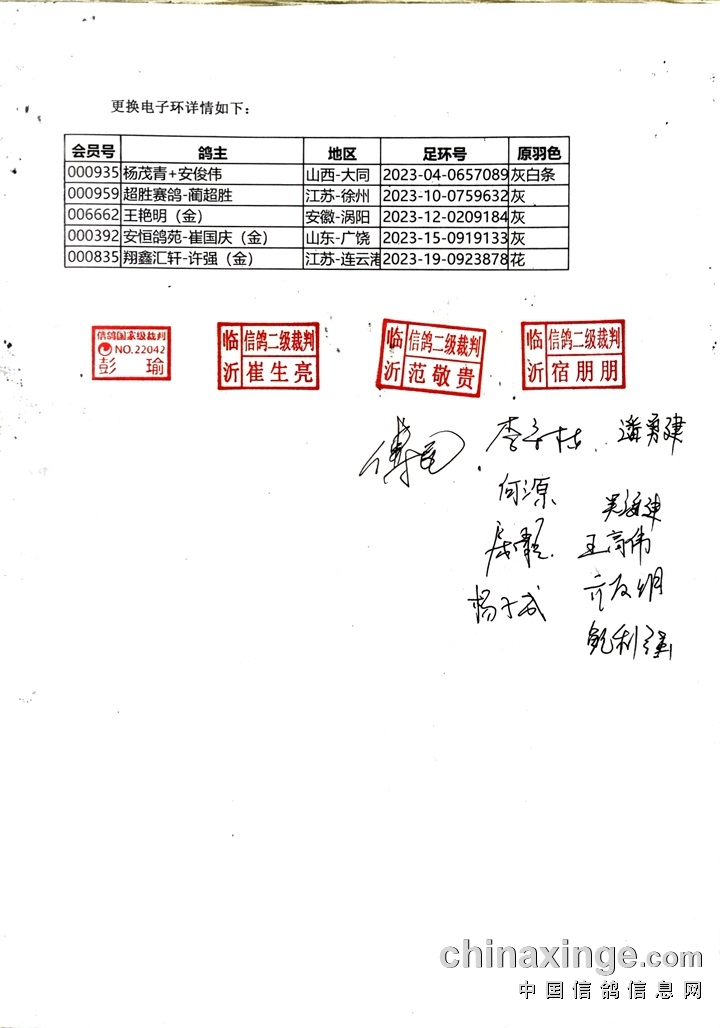 更换电子环详情如下：
会员号 鸽主 地区 足环号 原羽色
000935 杨茂青+安俊伟 山西-大同 2023-04-0657089 灰白条
000959 超胜赛鸽-蔺超胜 江苏-徐州 2023-10-0759632 灰
006662 王艳明（金） 安徽-涡阳 2023-12-0209184 灰
000392 安恒鸽苑-崔国庆（金） 山东-广饶 2023-15-0919133 灰
000835 翔鑫汇轩-许强（金） 江苏-连云港 2023-19-0923878 花
信鸽国家级裁判
NO.22042
彭瑜
临沂 信鸽二级裁判
崔生亮
临沂 信鸽二级裁判
范敬贵
临沂 信鸽二级裁判
宿朋朋
潘勇建
何源
王高伟
chinaxinge.com
中国信鸽信息网